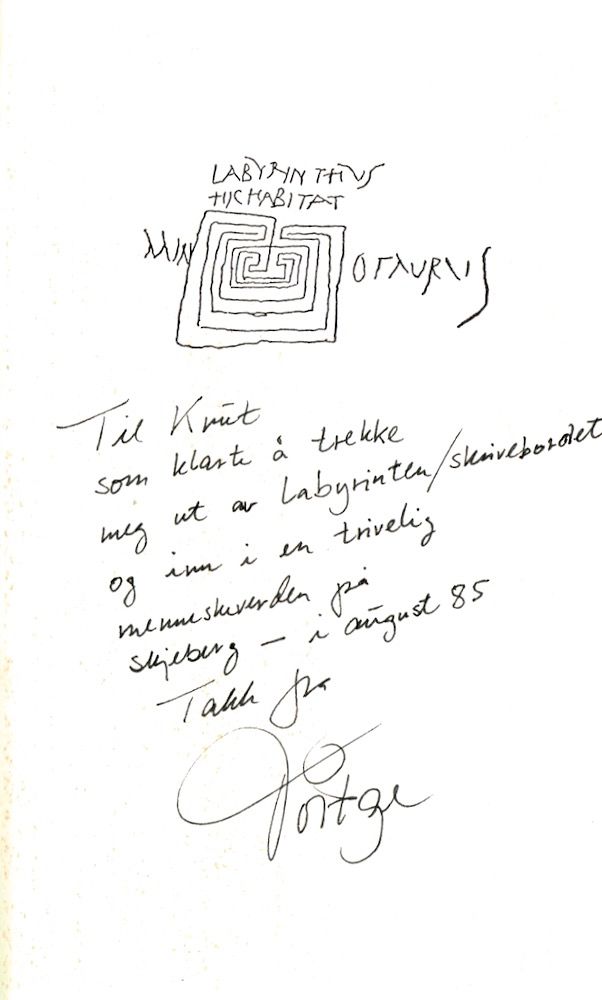 LABYRINTHUS
HIC HABITAT
MINOTAURUS
Til Knut
som klarte å trekke
meg ut av Labyrinten/skrivebordet
og inn i en trivelig
menneskeverden på
Skjeberg – i august 85
Takk fra